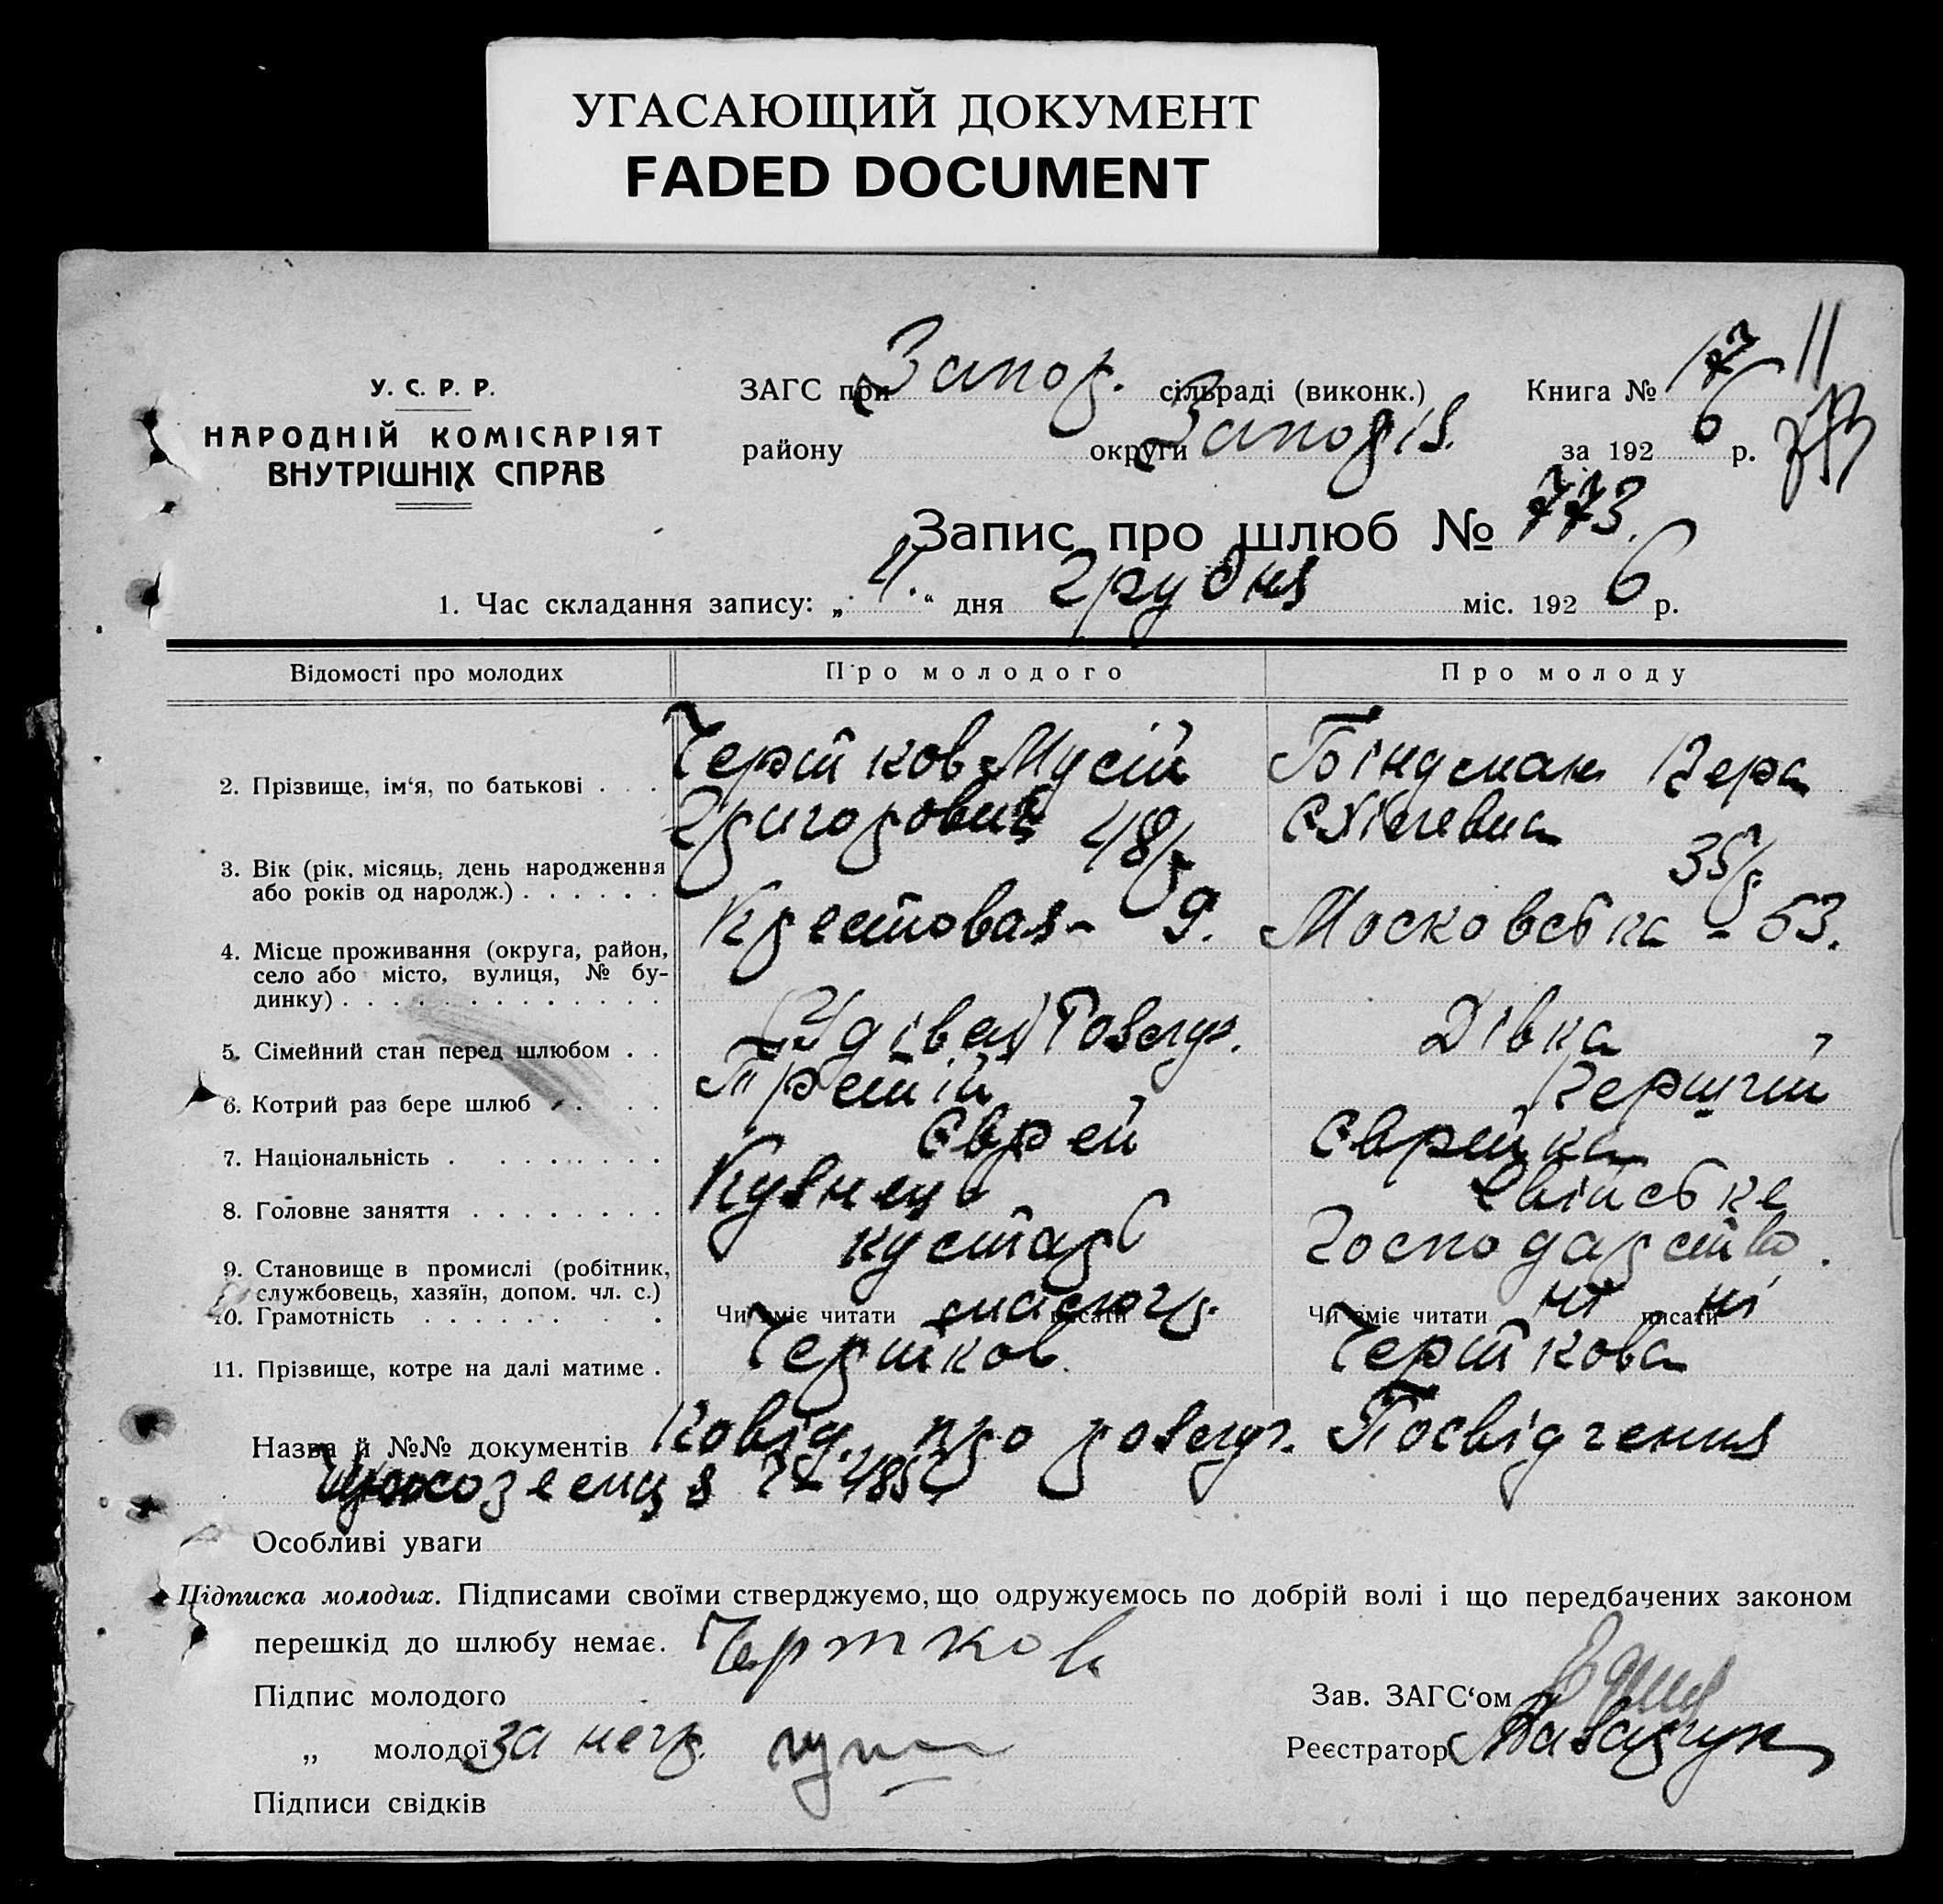 УГАСАЮЩИЙ ДОКУМЕНТ
FADED DOCUMENT
У. С. Р. Р.
НАРОДНІЙ КОМІСАРІЯТ
ВНУТРІШНІХ СПРАВ
ЗАГС при Запор. сільраді (виконк.) Книга № 17 11
району округи Запоріз. за 192 6 р.
Запис про шлюб № 773.
1. Час складання запису: „ 4. “ дня Грудня міс. 192 6 р.
Відомості про молодих Про молодого Про молоду
2. Прізвище, ім‘я, по батькові . . . Чертков Мусій Григорович Гіндсман Пера Єхілевна
3. Вік (рік, місяць, день народження
або років од народж.) . . . . . . 48 35
4. Місце проживання (округа, район,
село або місто, вулиця, № бу-
динку) . . . . . . . . . . . . . Крестовая - 9. Московська - 53.
5. Сімейний стан перед шлюбом . . Розлуч. Дівка
6. Котрий раз бере шлюб . . . . Третій Перший
7. Національність . . . . . . . . Єврей Єврейка
8. Головне заняття . . . . . . . . Кузнець Свійське
9. Становище в промислі (робітник,
службовець, хазяїн, допом. чл. с.) кустарь Господарство.
10. Грамотність . . . . . . . . Чи вміє читати писати Чи вміє читати ні писати ні
11. Прізвище, котре на далі матиме . Чертков. Черткова
Назва й №№ документів Повід. про розлуч. Посвідчення
Особливі уваги
Підписка молодих. Підписами своїми стверджуємо, що одружуємось по добрій волі і що передбачених законом
перешкід до шлюбу немає. Чертков
Підпис молодого Зав. ЗАГС‘ом
„ молодої за негр. Реєстратор
Підписи свідків